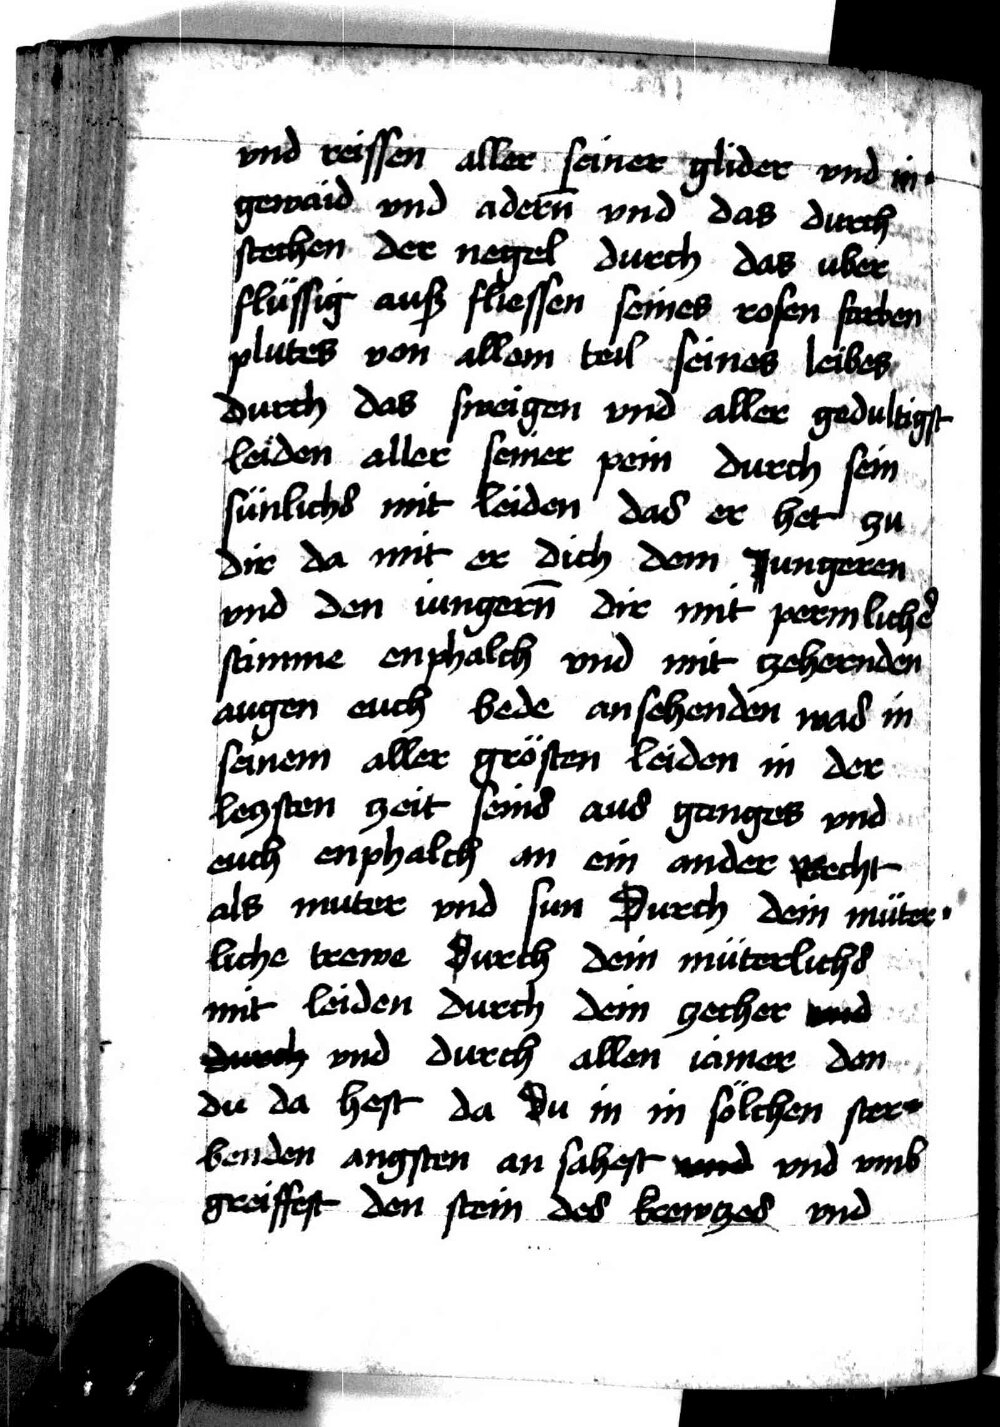 vnd reissen aller seiner glider vnd in·
gewaid vnd adern̄ vnd das durch
stechen der negel durch das uber
flüssig auß fliessen seines rosen farben
plutes von allem teil seines leibes
durch das sweigen vnd aller gedultigst
leiden aller seiner pein durch sein
sünlichs mit leiden das er het zu
dir da mit er dich dem Jungeren
vnd den iungern̄ dir mit permlicher
stimme enphalch vnd mit zehernden
augen euch bede ansehenden was in
seinem aller grösten leiden in der
letzsten zeit seins aus ganges vnd
euch enphalch an ein ander recht
als muter vnd sun Durch dein müter·
liche trewe Durch dein müterlichs
mit leiden durch dein zecher vnd
durch vnd durch allen iamer den
du da hest da Du in in sölchen ster·
benden angsten an sahest vnd vnd vmb
greiffest den stein des krewtzes vnd